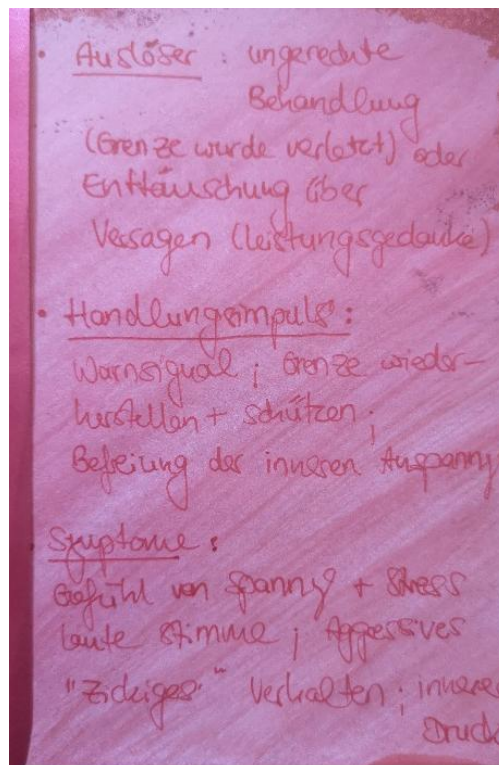 • Auslöser : ungerechte
Behandlung
(Grenze wurde verletzt) oder
Enttäuschung über
Versagen (Leistungsgedanke)
• Handlungsimpuls :
Warnsignal ; Grenze wieder-
herstellen + schützen ;
Befreiung der inneren Anspanng
• Symptome :
Gefühl von Spanng + Stress
laute Stimme ; Aggressives
"Zickiges" Verhalten ; innerer
Druck